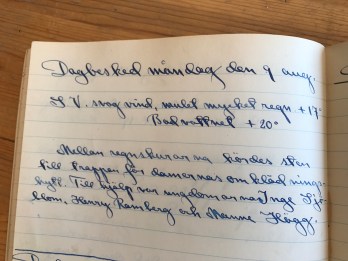 Dagbesked måndag den 9 aug.
S V. svag vind, mulet mycket regn + 17°
Badvattnet + 20°
Mellan regnskurarna kördes sten
till trappen för damernas omklädnings-
hytt. Till hjälp var ungdomarna Inge Sjö-
blom, Henry Ramberg och Manne Högg.